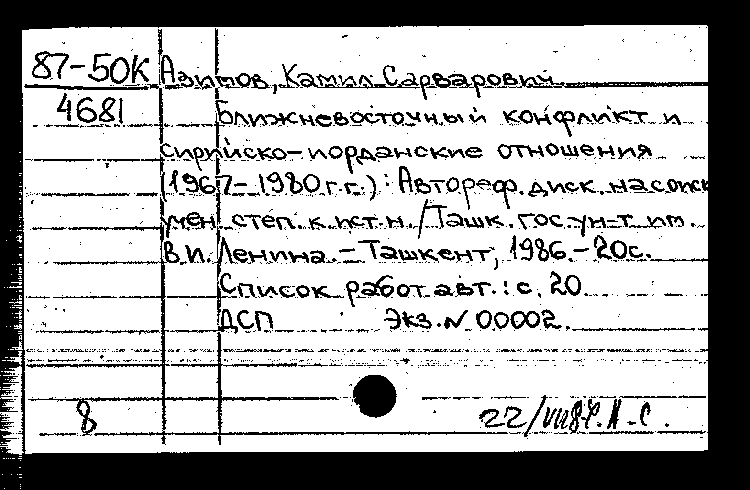 87-50К Азимов, Камил Сарварович.
4681 Ближневосточный конфликт и
сирийско-иорданские отношения
(1967-1980 г.г.): Автореф. диск. на соиск
учен. степ. к. ист. н. /Ташк. гос. ун-т им.
В.И. Ленина. - Ташкент, 1986. - 20с.
Список работ авт.: с. 20.
ДСП Экз. N 00002.
8 22/